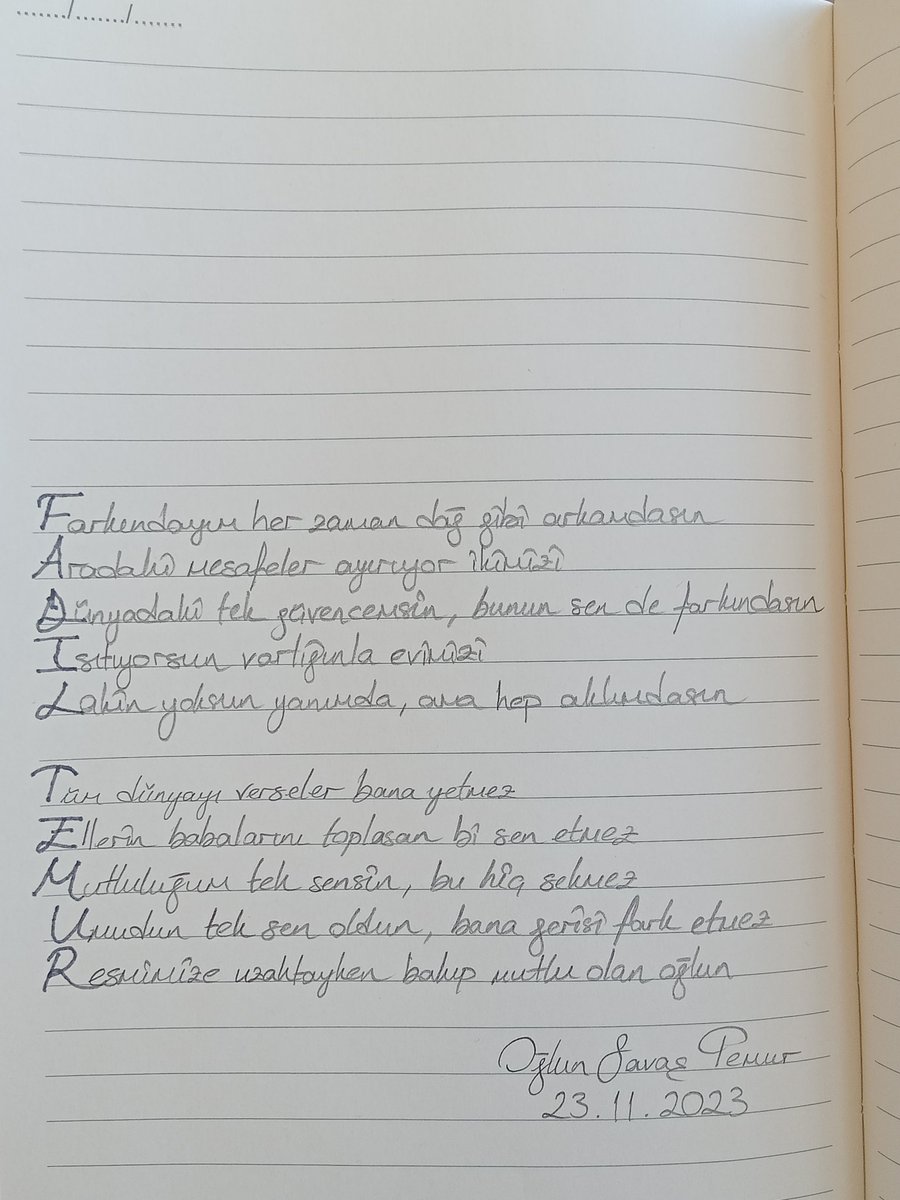 ....../....../......
Farkındayım her zaman dağ gibi arkamdasın
Aradaki mesafeler ayırıyor ikimizi
Dünyadaki tek güvencemsin, bunun sen de farkındasın
Isıtıyorsun varlığınla evimizi
Lakin yoksun yanımda, ama hep aklımdasın
Tüm dünyayı verseler bana yetmez
Ellerin babalarını toplasan bi sen etmez
Mutluluğum tek sensin, bu hiç sekmez
Umudum tek sen oldun, bana gerisi fark etmez
Resmimize uzaktayken bakıp mutlu olan oğlun
Oğlun Savaş Temur
23.11.2023